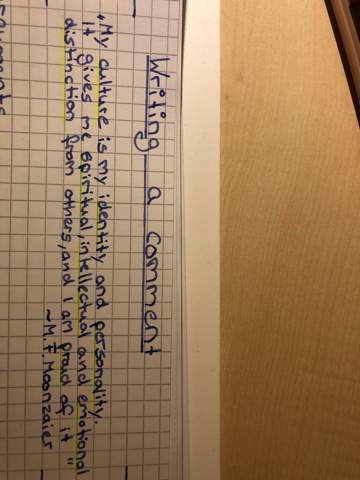 Writing a comment
"My culture is my identity and personality.
It gives me spiritual, intellectual and emotional
distinction from others, and I am proud of it "
~M.F. Moonzajer